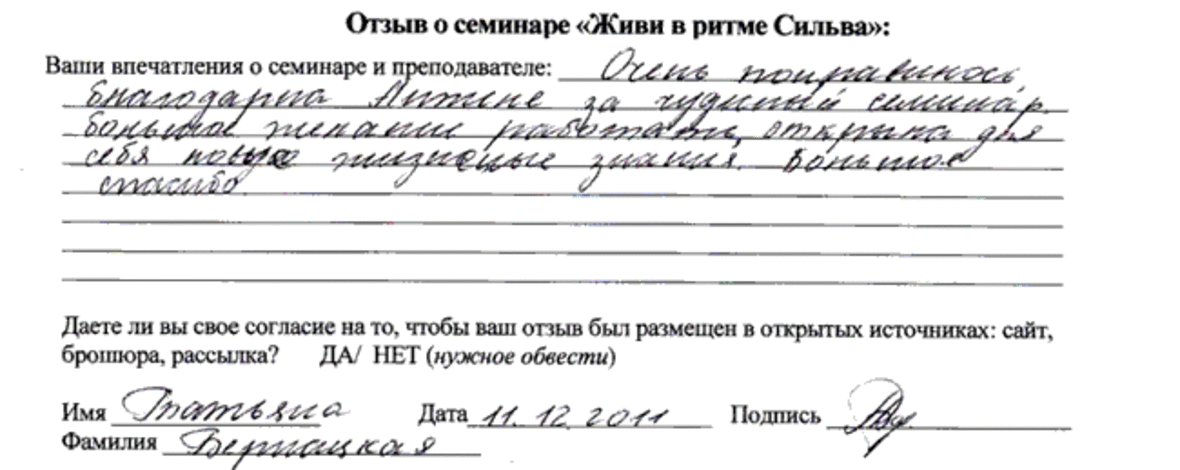 Отзыв о семинаре «Живи в ритме Сильва»:
Ваши впечатления о семинаре и преподавателе: Очень понравилось,
благодарна за чудный семинар.
Большое желание работать, открыла для
себя новые жизненные знания. Большое
спасибо.
Даете ли вы свое согласие на то, чтобы ваш отзыв был размещен в открытых источниках: сайт,
брошюра, рассылка? ДА/ НЕТ (нужное обвести)
Имя Татьяна Дата 11.12.2011 Подпись
Фамилия